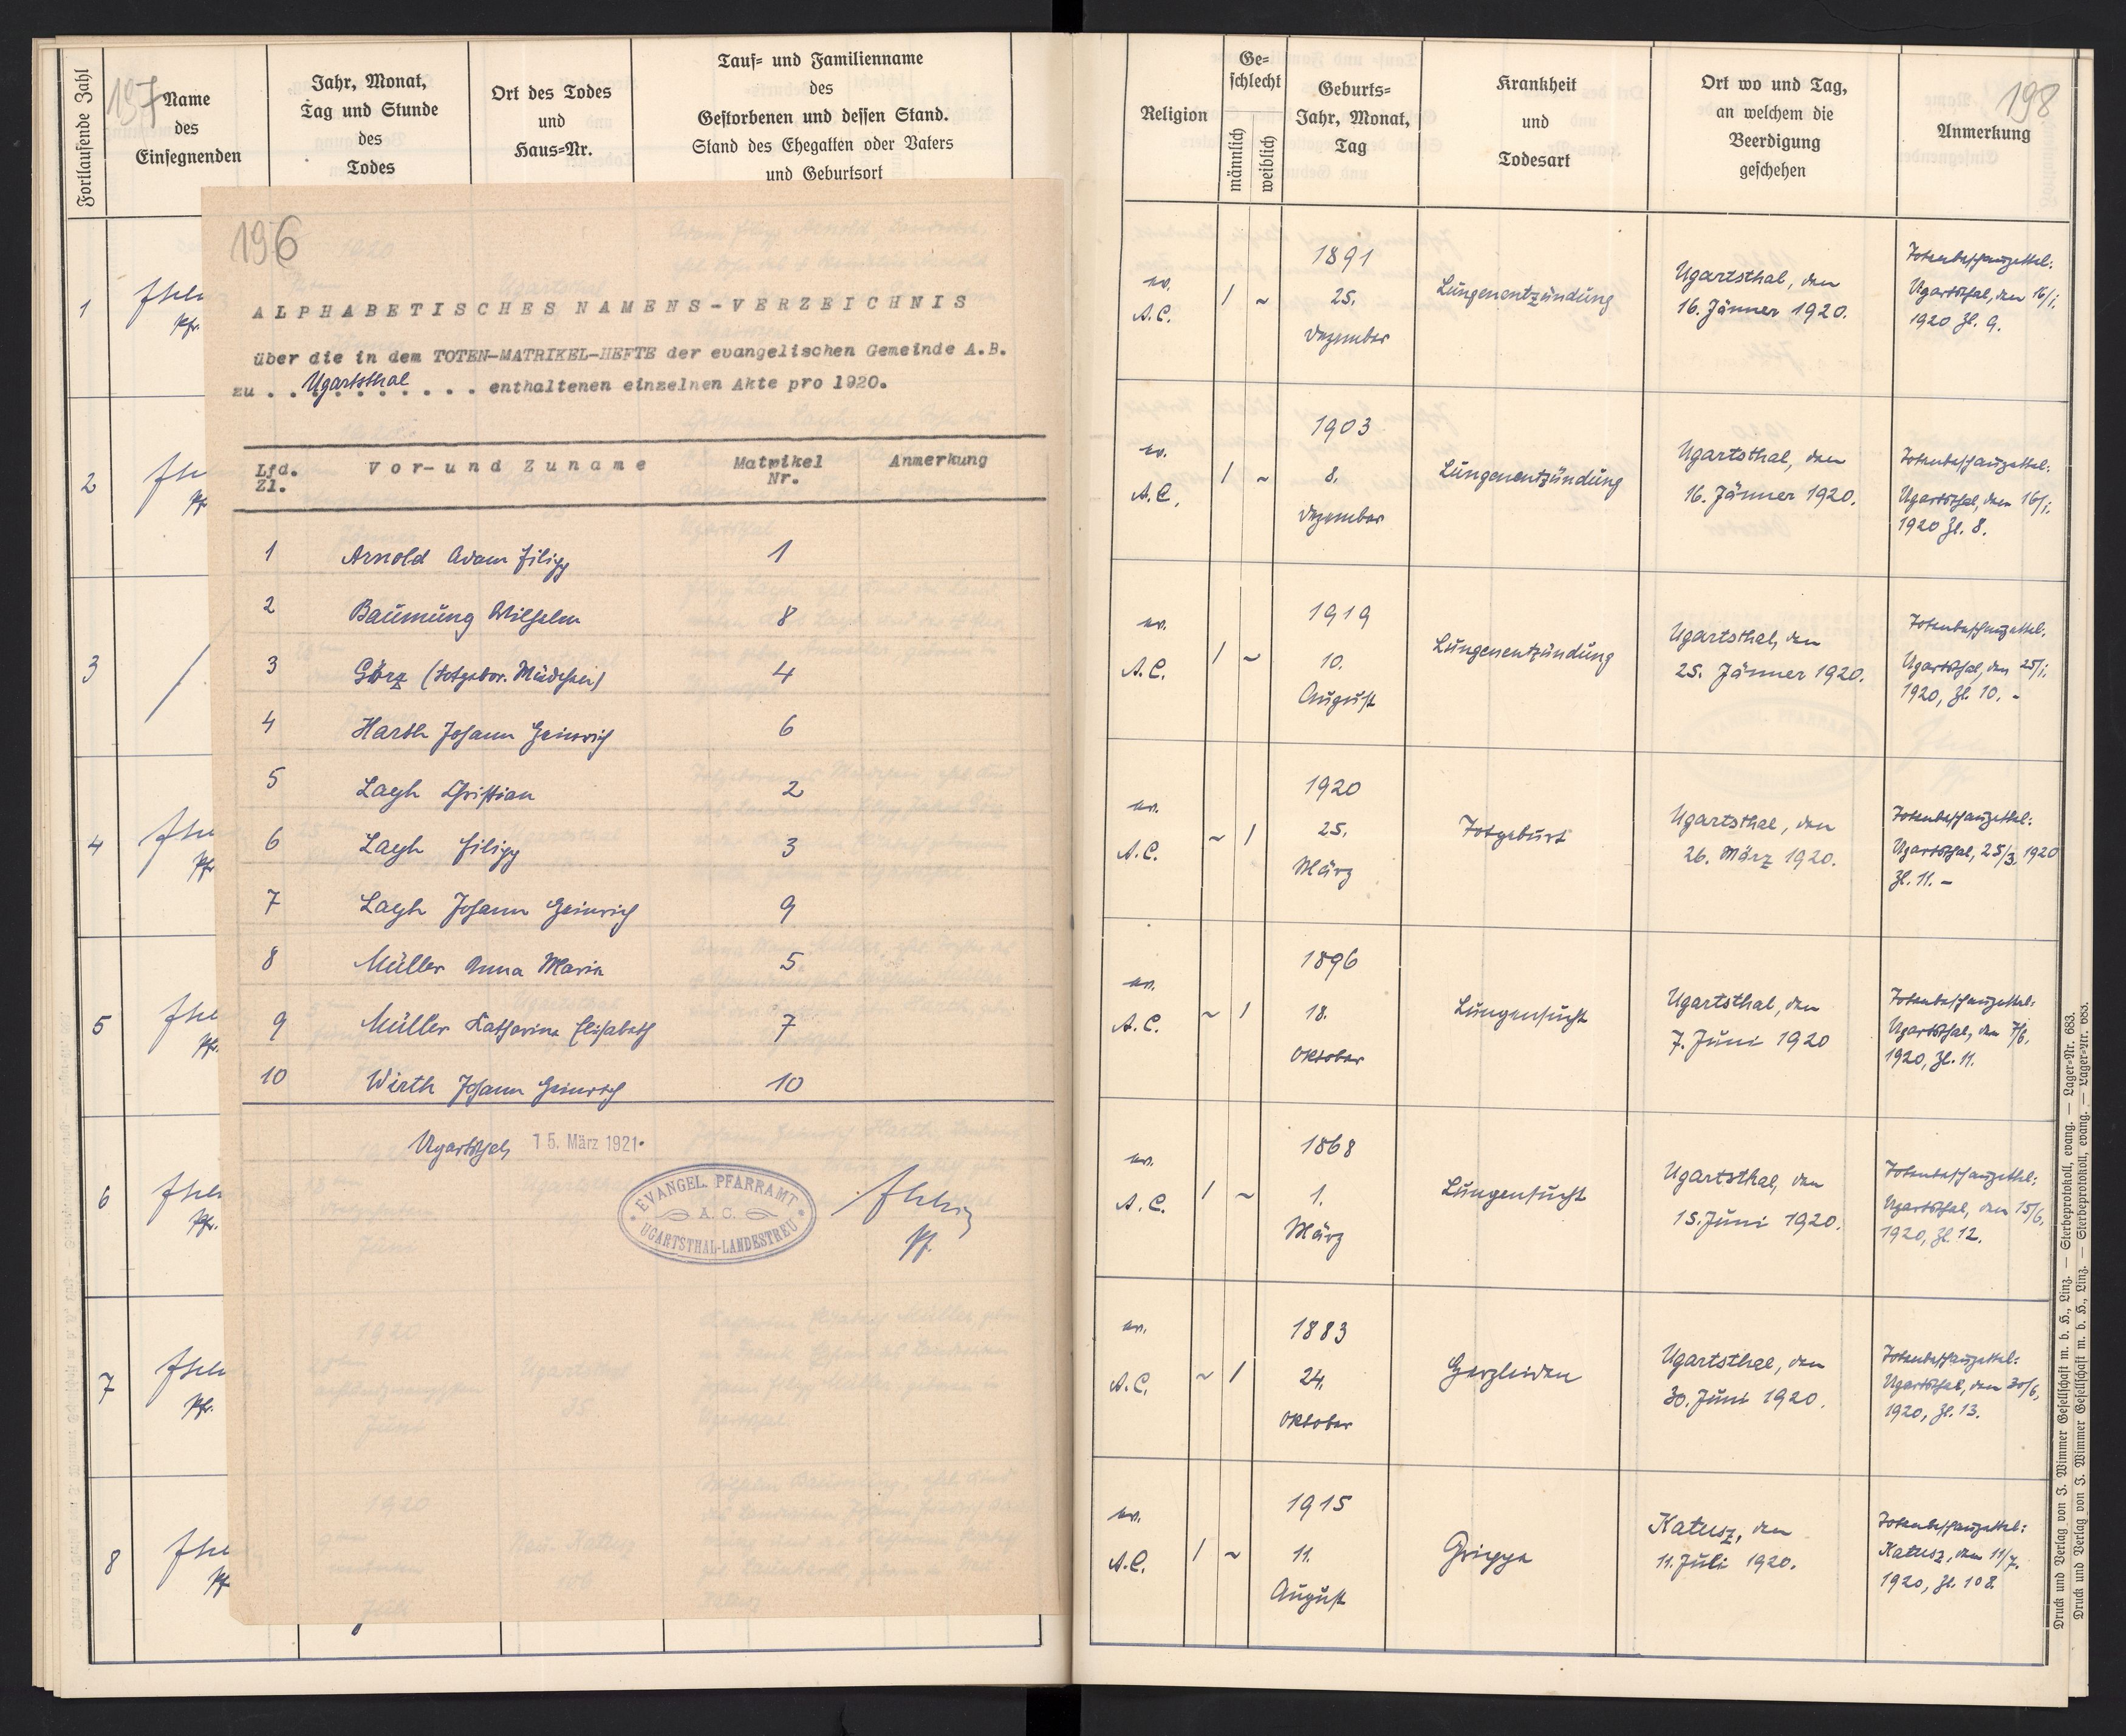 Fortlaufende Zahl
197
Name
des
Einsegnenden
Jahr, Monat,
Tag und Stunde
des
Todes
Ort des Todes
und
Haus-Nr.
Tauf- und Familienname
des
Gestorbenen und dessen Stand.
Stand des Ehegatten oder Vaters
und Geburtsort
1
Pfr.
2
Pfr
3
4
Pfr
5
Pfr.
6
Pfr.
7
Pfr.
8
Pfr
196
ALPHABETISCHES NAMENS-VERZEICHNIS
über die in dem TOTEN-MATRIKEL-HEFTE der evangelischen Gemeinde A.B.
zu . . Ugartsthal . . . enthaltenen einzelnen Akte pro 1920.
Lfd. Zl. Vor- und Zuname Matrikel Nr. Anmerkung
1 Arnold Adam Filipp 1
2 Baumung Wilhelm 8
3 Görz (totgebor. Mädchen) 4
4 Harth Johann Heinrich 6
5 Layh Christian 2
6 Layh Filipp 3
7 Layh Johann Heinrich 9
8 Müller Anna Maria 5
9 Müller Katharina Elisabeth 7
10 Wirth Johann Heinrich 10
Ugartsthal, 15. März 1921.
EVANGEL. PFARRAMT
A. C.
UGARTSTHAL-LANDESTREU
Pf.
Religion
Ge-
schlecht
männlich
weiblich
Geburts-
Jahr, Monat,
Tag
Krankheit
und
Todesart
Ort wo und Tag,
an welchem die
Beerdigung
geschehen
198
Anmerkung
ev.
A.C.
1 ~
1891
25.
Dezember
Lungenentzündung
Ugartsthal, den
16. Jänner 1920.
Totenbeschauzettel:
Ugartsthal, den 16/1.
1920 Zl. 9.
ev.
A.C.
1 ~
1903
8.
Dezember
Lungenentzündung
Ugartsthal, den
16. Jänner 1920.
Totenbeschauzettel:
Ugartsthal, den 16/1.
1920 Zl. 8.
ev.
A.C.
1 ~
1919
10.
August
Lungenentzündung
Ugartsthal, den
25. Jänner 1920.
Totenbeschauzettel.
Ugartsthal, den 25/1.
1920, Zl. 10. -
ev.
A.C.
~ 1
1920
25.
März
Totgeburt
Ugartsthal, den
26. März 1920.
Totenbeschauzettel:
Ugartsthal, 25/3. 1920
Zl. 11. -
ev.
A.C.
~ 1
1896
18.
Oktober
Lungensucht
Ugartsthal, den
7. Juni 1920
Totenbeschauzettel:
Ugartsthal, den 7/6.
1920, Zl. 11.
ev.
A.C.
1 ~
1868
1.
März
Lungensucht
Ugartsthal, den
15. Juni 1920.
Totenbeschauzettel:
Ugartsthal, den 15/6.
1920, Zl. 12.
ev.
A.C.
~ 1
1883
24.
Oktober
Herzleiden
Ugartsthal, den
30. Juni 1920.
Totenbeschauzettel:
Ugartsthal, den 30/6.
1920, Zl. 13.
ev.
A.C.
1 ~
1915
11.
August
Grippe
Katusz, den
11. Juli 1920.
Totenbeschauzettel:
Katusz, den 11/7.
1920, Zl. 108.
Druck und Verlag von J. Wimmer Gesellschaft m. b. H., Linz. — Sterbeprotokoll, evang. — Lager-Nr. 683.
Druck und Verlag von J. Wimmer Gesellschaft m. b. H., Linz. — Sterbeprotokoll, evang. — Lager-Nr. 683.